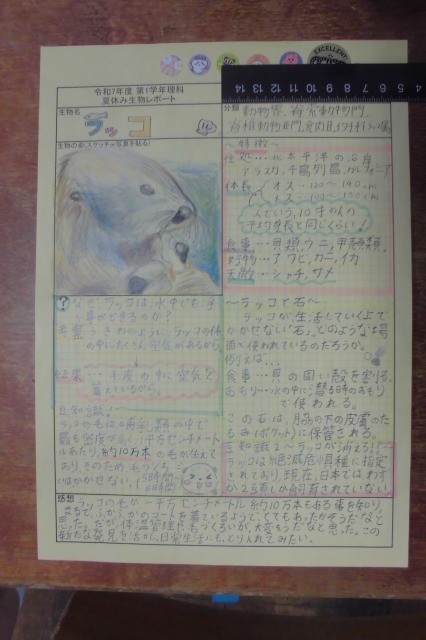 EXCELLENT
14 13 12 11 10 9 8 7 6 5 4
令和7年度 第1学年理科
夏休み生物レポート
生物名
ラッコ
分類
動物界、脊索動物門、
脊椎動物亜門、食肉目、イタチ科
生物の姿(スケッチor写真を貼る)
〜特徴〜
生息…北太平洋の沿岸
アラスカ、千島列島、カリフォルニア
体長 オス…120〜
メス…
人でいう、10才の人の
平均身長と同じくらい!
食事…貝類、ウニ、甲殻類
好物…アワビ、カニ、イカ
天敵…シャチ、サメ
? なぜ、ラッコは、水中でも浮
く事ができるのか?
ラッコの体
の中にたくさん空気があるから。
結果…毛皮の中に空気を
蓄えているから。
豆知識1
ラッコの毛は哺乳類の中で
最も密度が高く、一平方センチメート
ルあたり、約10万本もの毛が生えて
おり、そのため、毛づくろ
いはかかせない。
〜ラッコと石〜
ラッコが生活していく上で
かかせない「石」。どのような場
面で使われているのだろうか。
例えば…
食事…貝の固い殻を割る。
おもり…水の中に潜る時のおもり
で使われる。
この石は、脇の下の皮膚のた
るみ(ポケット)に保管される。
豆知識2〜ラッコが消える!?
ラッコは絶滅危惧種に指定
されており、現在、日本では、わず
か2頭しか飼育されていない。
感想
ラッコの毛が一平方センチメートル約10万本もある事を知り、
まるで、ふかふかのコートを着ているようで、とてもあったかそうだなと
思った。だが、体温管理や毛づくろいが、大変そうだなと思った。この
新たな発見を活かし、日常生活にも、とり入れてみたい。